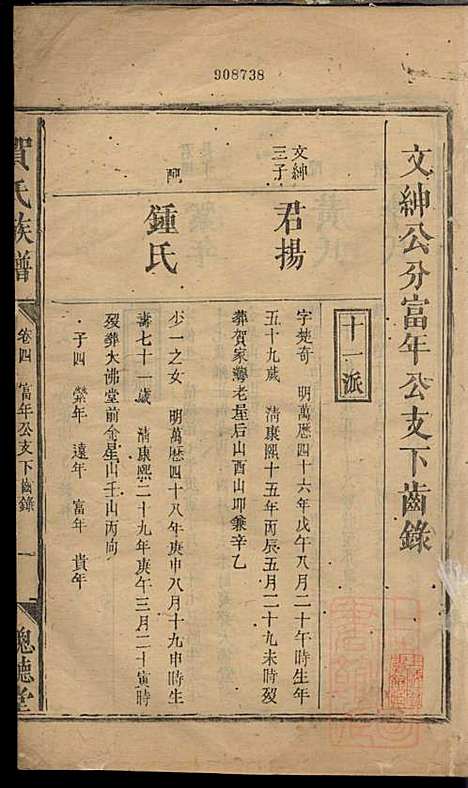 908738
文紳公分富年公支下齒錄
十一派
文紳
三子
君揚
字楚奇 明萬曆四十六年戊午八月二十午時生年
五十九歲 清康熙十五年丙辰五月二十九未時歿
葬賀家灣老屋后山酉山卯兼辛乙
配
鍾氏
少一之女 明萬曆四十八年庚申八月十九申時生
壽七十一歲 清康熙二十九年庚午三月二十寅時
歿葬大佛堂前金星山壬山丙向
子四 榮年 遠年 富年 貴年
賀氏族譜
卷四 富年公支下齒錄
一
德堂